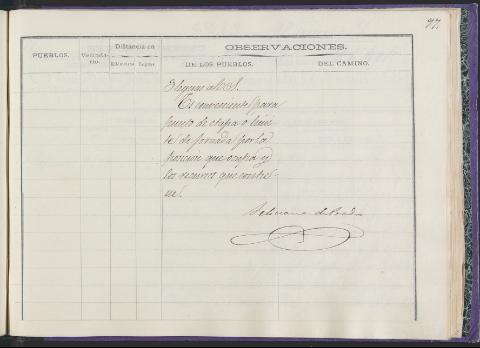 77.
PUEBLOS.
Vecinda-
rio.
Distancia en
Kilómetros
Leguas
OBSERVACIONES.
DE LOS PUEBLOS.
DEL CAMINO.
3 leguas al S.
Es conveniente para
punto de etapa o límite
de jornada por la
posicion que ocupa y
los recursos que contie-
ne.
Feliciano de Prada